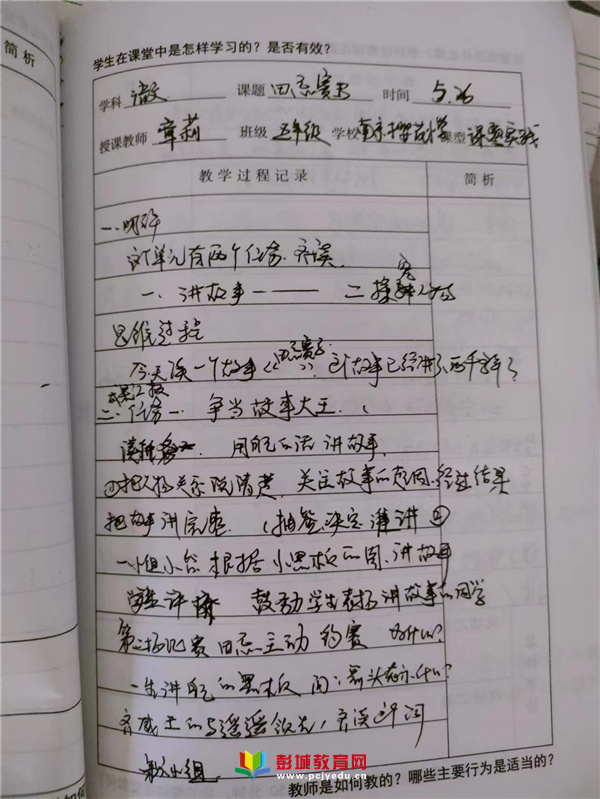 简析
学生在课堂中是怎样学习的？是否有效？
学科 语文 课题 田忌赛马 时间 5.26
授课教师 章莉 班级 五年级 学校 南京 小学 课型 课型实践
教学过程记录 简析
一、明
这个单元有两个任务．齐读．
一、讲故事—— 二
思维过程
今天读一个故事《田忌赛马》．这个故事已经讲了两千年了
二、任务一．争当故事大王．
用自己的话讲故事．
①把人物关系说清楚，关注故事的起因、经过、结果
把故事讲完整．（抽签决定谁讲②
一小组小答根据小黑板的图，讲故事
学生评 鼓动学生表扬讲故事的同学
第二场比赛 田忌主动约赛 为什么？
一生讲自己的黑板 问：箭头表示什么？
齐威王的马遥遥领先，齐读这个词
小组
彭城教育网
www.pcjyedu.cn
教师是如何教的？哪些主要行为是适当的？